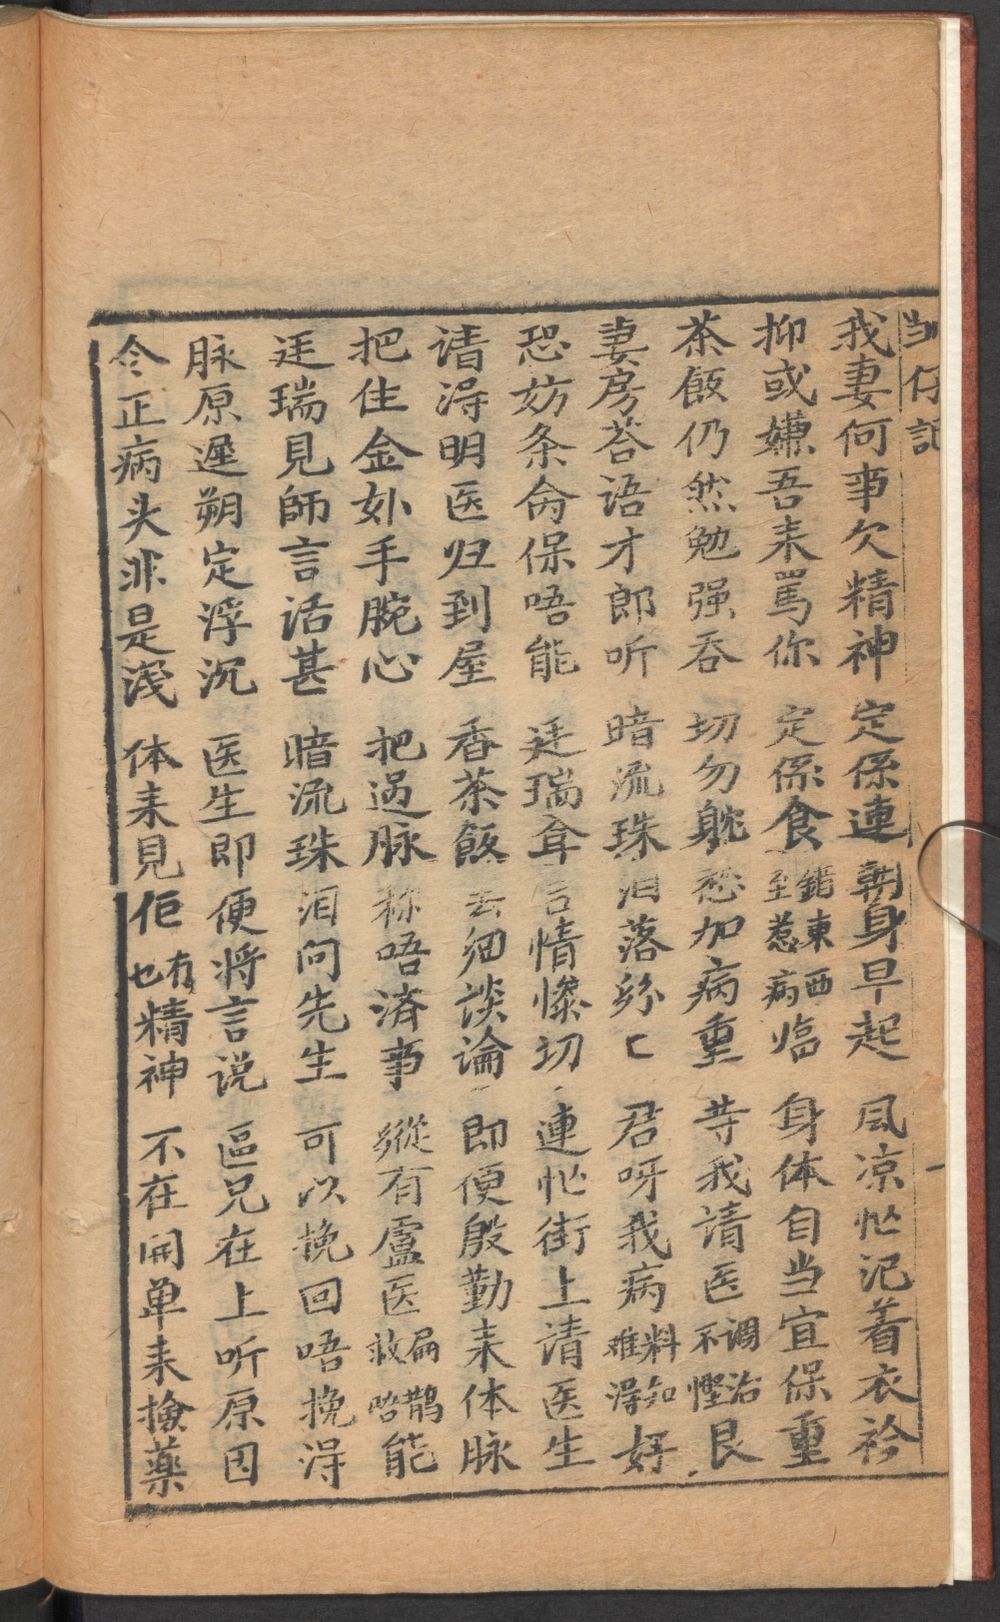 仔記 一
我妻何事欠精神 定係連朝身早起 風凉忙记着衣衿
抑或嫌吾来骂你 定係食錯東西至惹病临 身体自当宜保重
茶飯仍然勉强吞 切勿躭愁加病重 䓁我请医调治不慳艮
妻房荅语才郎听 暗流珠泪落纷匕 君呀我病料知难淂好
恐妨条命保唔能 廷瑞耳言情惨切 連忙街上请医生
请淂明医归到屋 香茶飯去细谈論 即便殷勤来体脉
把住金妙手腕心 把过脉称唔済事 縱有盧医扁鹊救唔能
廷瑞見師言话甚 暗流珠泪问先生 可以挽回唔挽淂
脉原遲朔定浮沉 医生即便将言说 區兄在上听原因
令正病头非是浅 体来見佢也冇精神 不在開单来撿藥